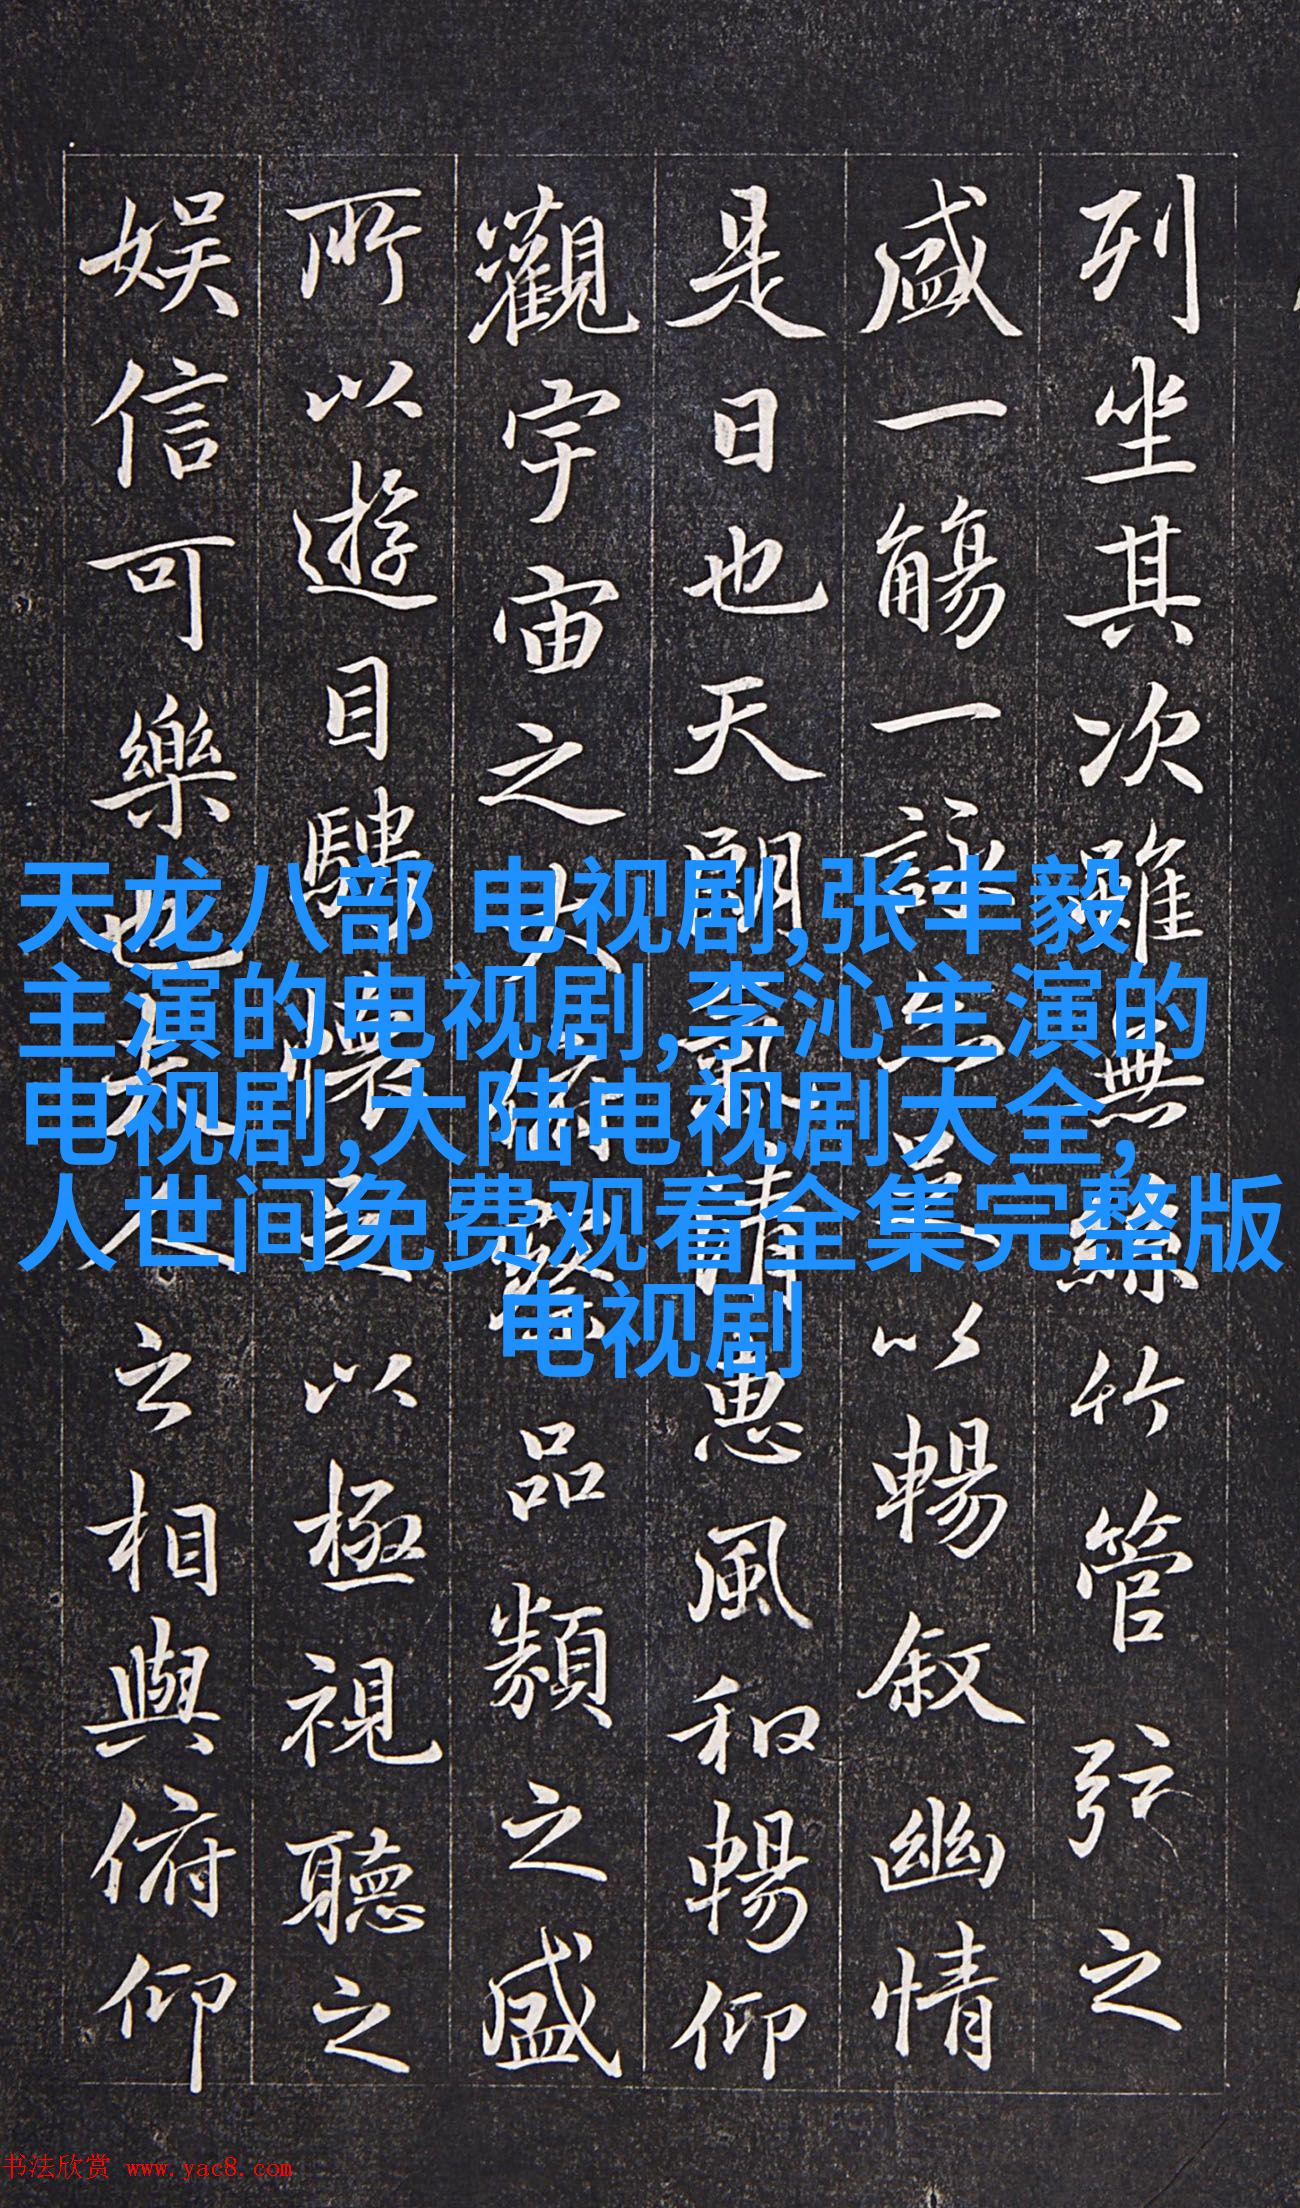 列坐其次雖無絲竹管弦之
盛一觴一詠亦足以暢叙幽情
是日也天朗氣清惠風和暢仰
觀宇宙之大俯察品類之盛
所以遊目騁懷足以極視聽之
娱信可樂也夫人之相與俯仰
天龙八部 电视剧,张丰毅
主演的电视剧,李沁主演的
电视剧,大陆电视剧大全,
人世间免费观看全集完整版
电视剧
书法欣赏 www.yac8.com